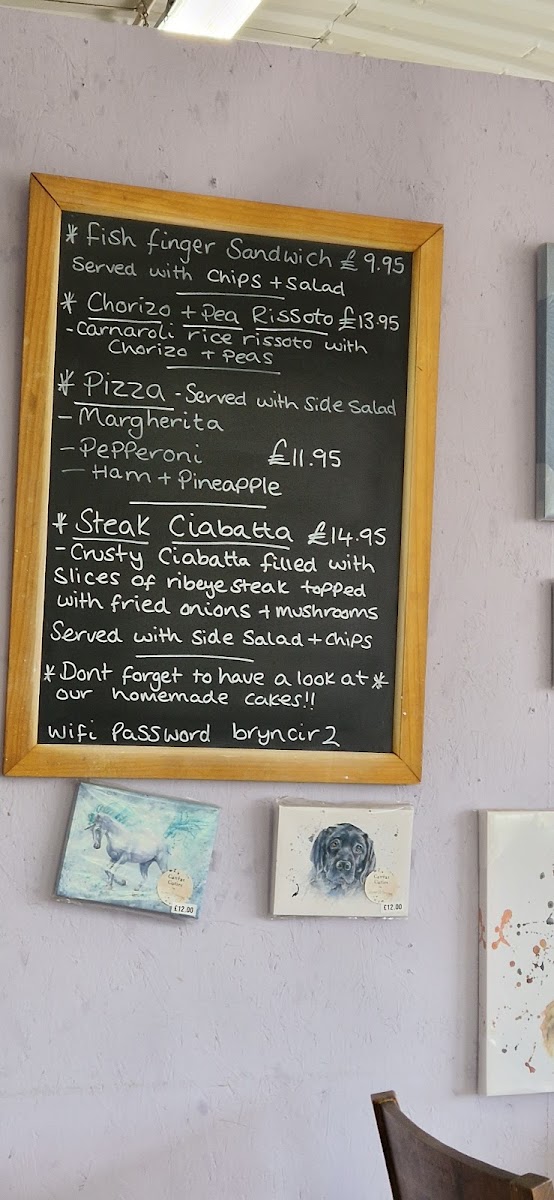 * Fish finger Sandwich £9.95
Served with chips + Salad
* Chorizo + Pea Rissoto £13.95
- Carnaroli rice rissoto with
Chorizo + Peas
* Pizza - Served with Side Salad
- Margherita
- Pepperoni £11.95
- Ham + Pineapple
* Steak Ciabatta £14.95
- Crusty Ciabatta filled with
Slices of ribeye steak topped
with fried onions + mushrooms
Served with Side Salad + chips
* Dont forget to have a look at *
our homemade cakes!!
wifi Password bryncir2
£12.00
£12.00